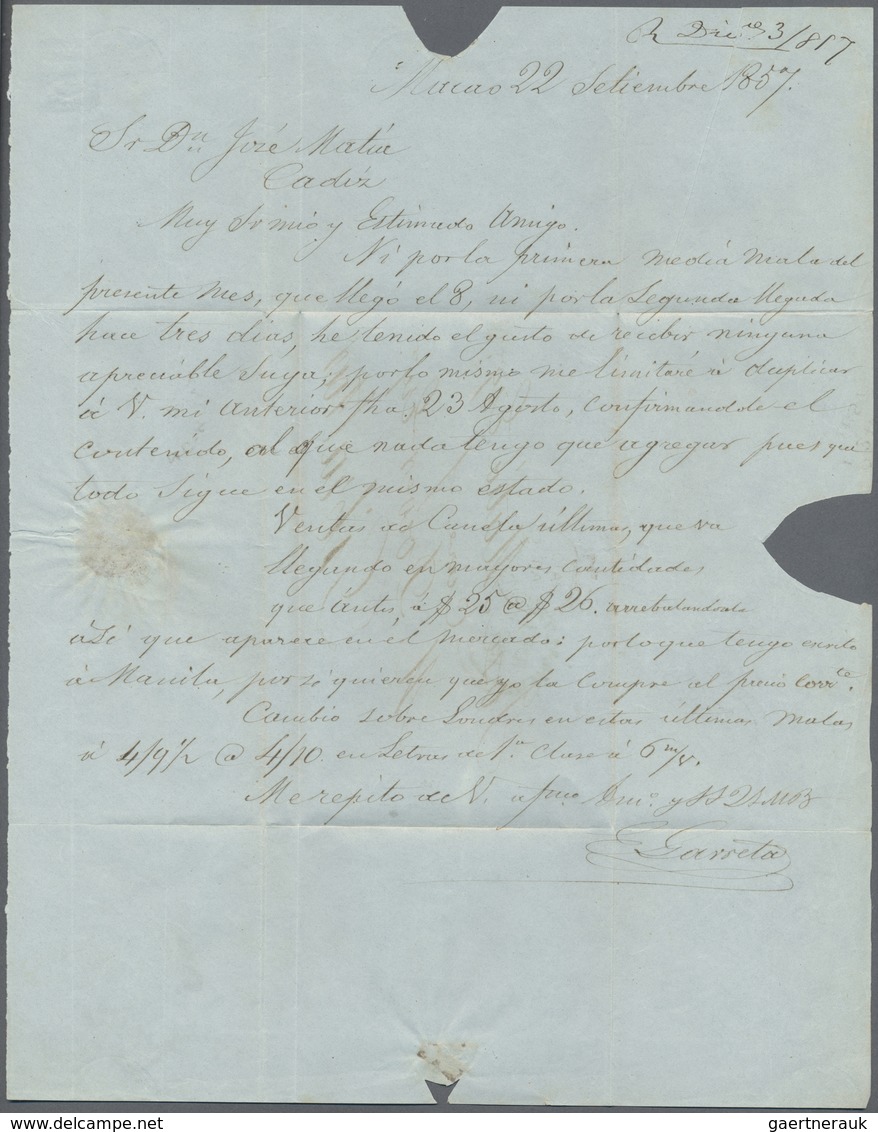 R Dic.re 3/857
Macao 22 Setiembre 1857.
Sr Dn José Matía
Cadiz
Muy Sr mio y Estimado Amigo.
Ni por la primera media mala del
presente mes, que llegó el 8, ni por la Segunda llegada
hace tres dias, he tenido el gusto de recibir ninguna
apreciable Suya; por lo mismo me limitaré á duplicar
á V. mi anterior fha. 23 Agosto, confirmandole el
contenido, al que nada tengo que agregar pues que
todo Sigue en el mismo estado.
Ventas de Canela últimas, que va
llegando en mayores cantidades
que ántes, á $ 25 @ $ 26. arrebatandose
así que aparece en el mercado; por lo que tengo escrito
á Manila, por si quieren que yo la compre al precio corrte.
Cambio sobre Londres en estas últimas malas
á 4/9 1/2 @ 4/10 en Letras de 1a Clase á 6 m/v.
Me repito de V. Amo. y SS Q S M B
E Garreta
gaertnerauk